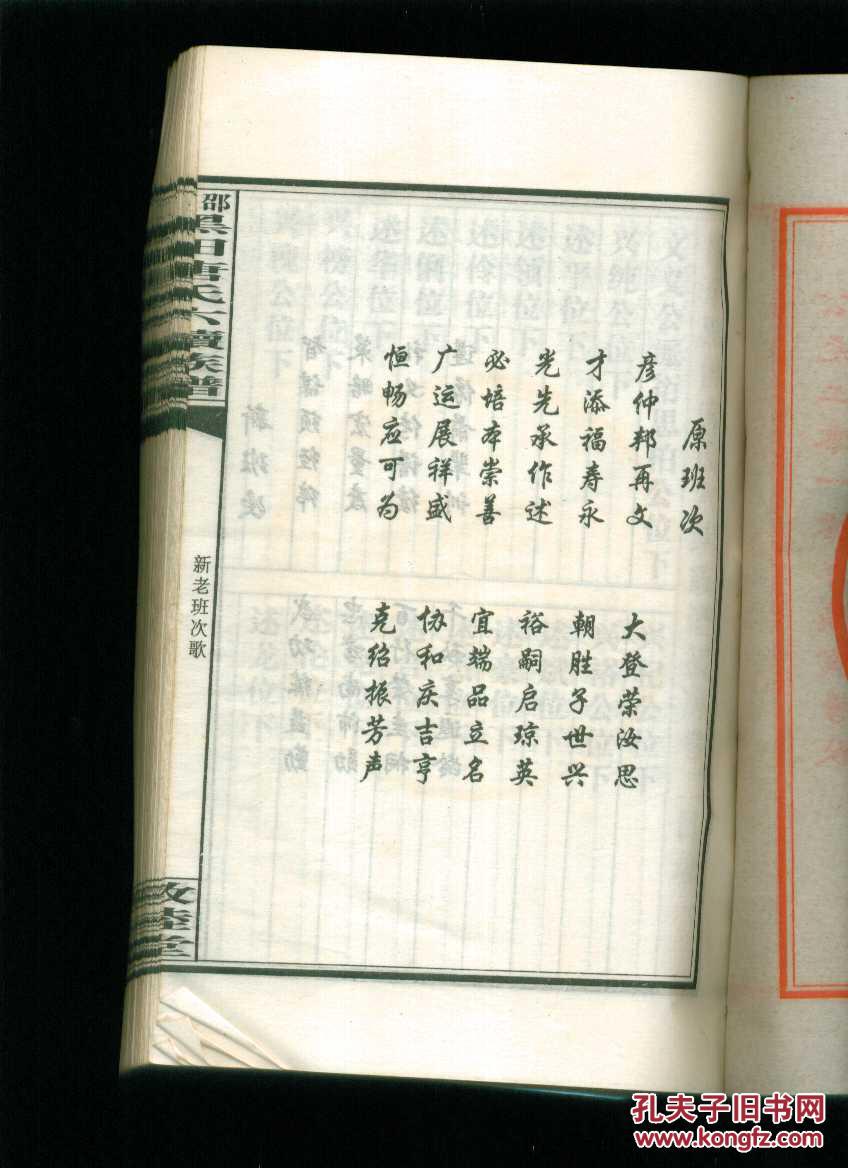 原班次
彦仲邦再文
大登荣汝思
才添福寿永
朝胜子世兴
光先承作述
裕嗣启琼英
必培本崇善
宜端品立名
广运展祥盛
协和庆吉亨
恒畅应可为
克绍振芳声
邵
黑田唐氏六续族谱
新老班次歌
敦睦堂
孔夫子旧书网
www.kongfz.com